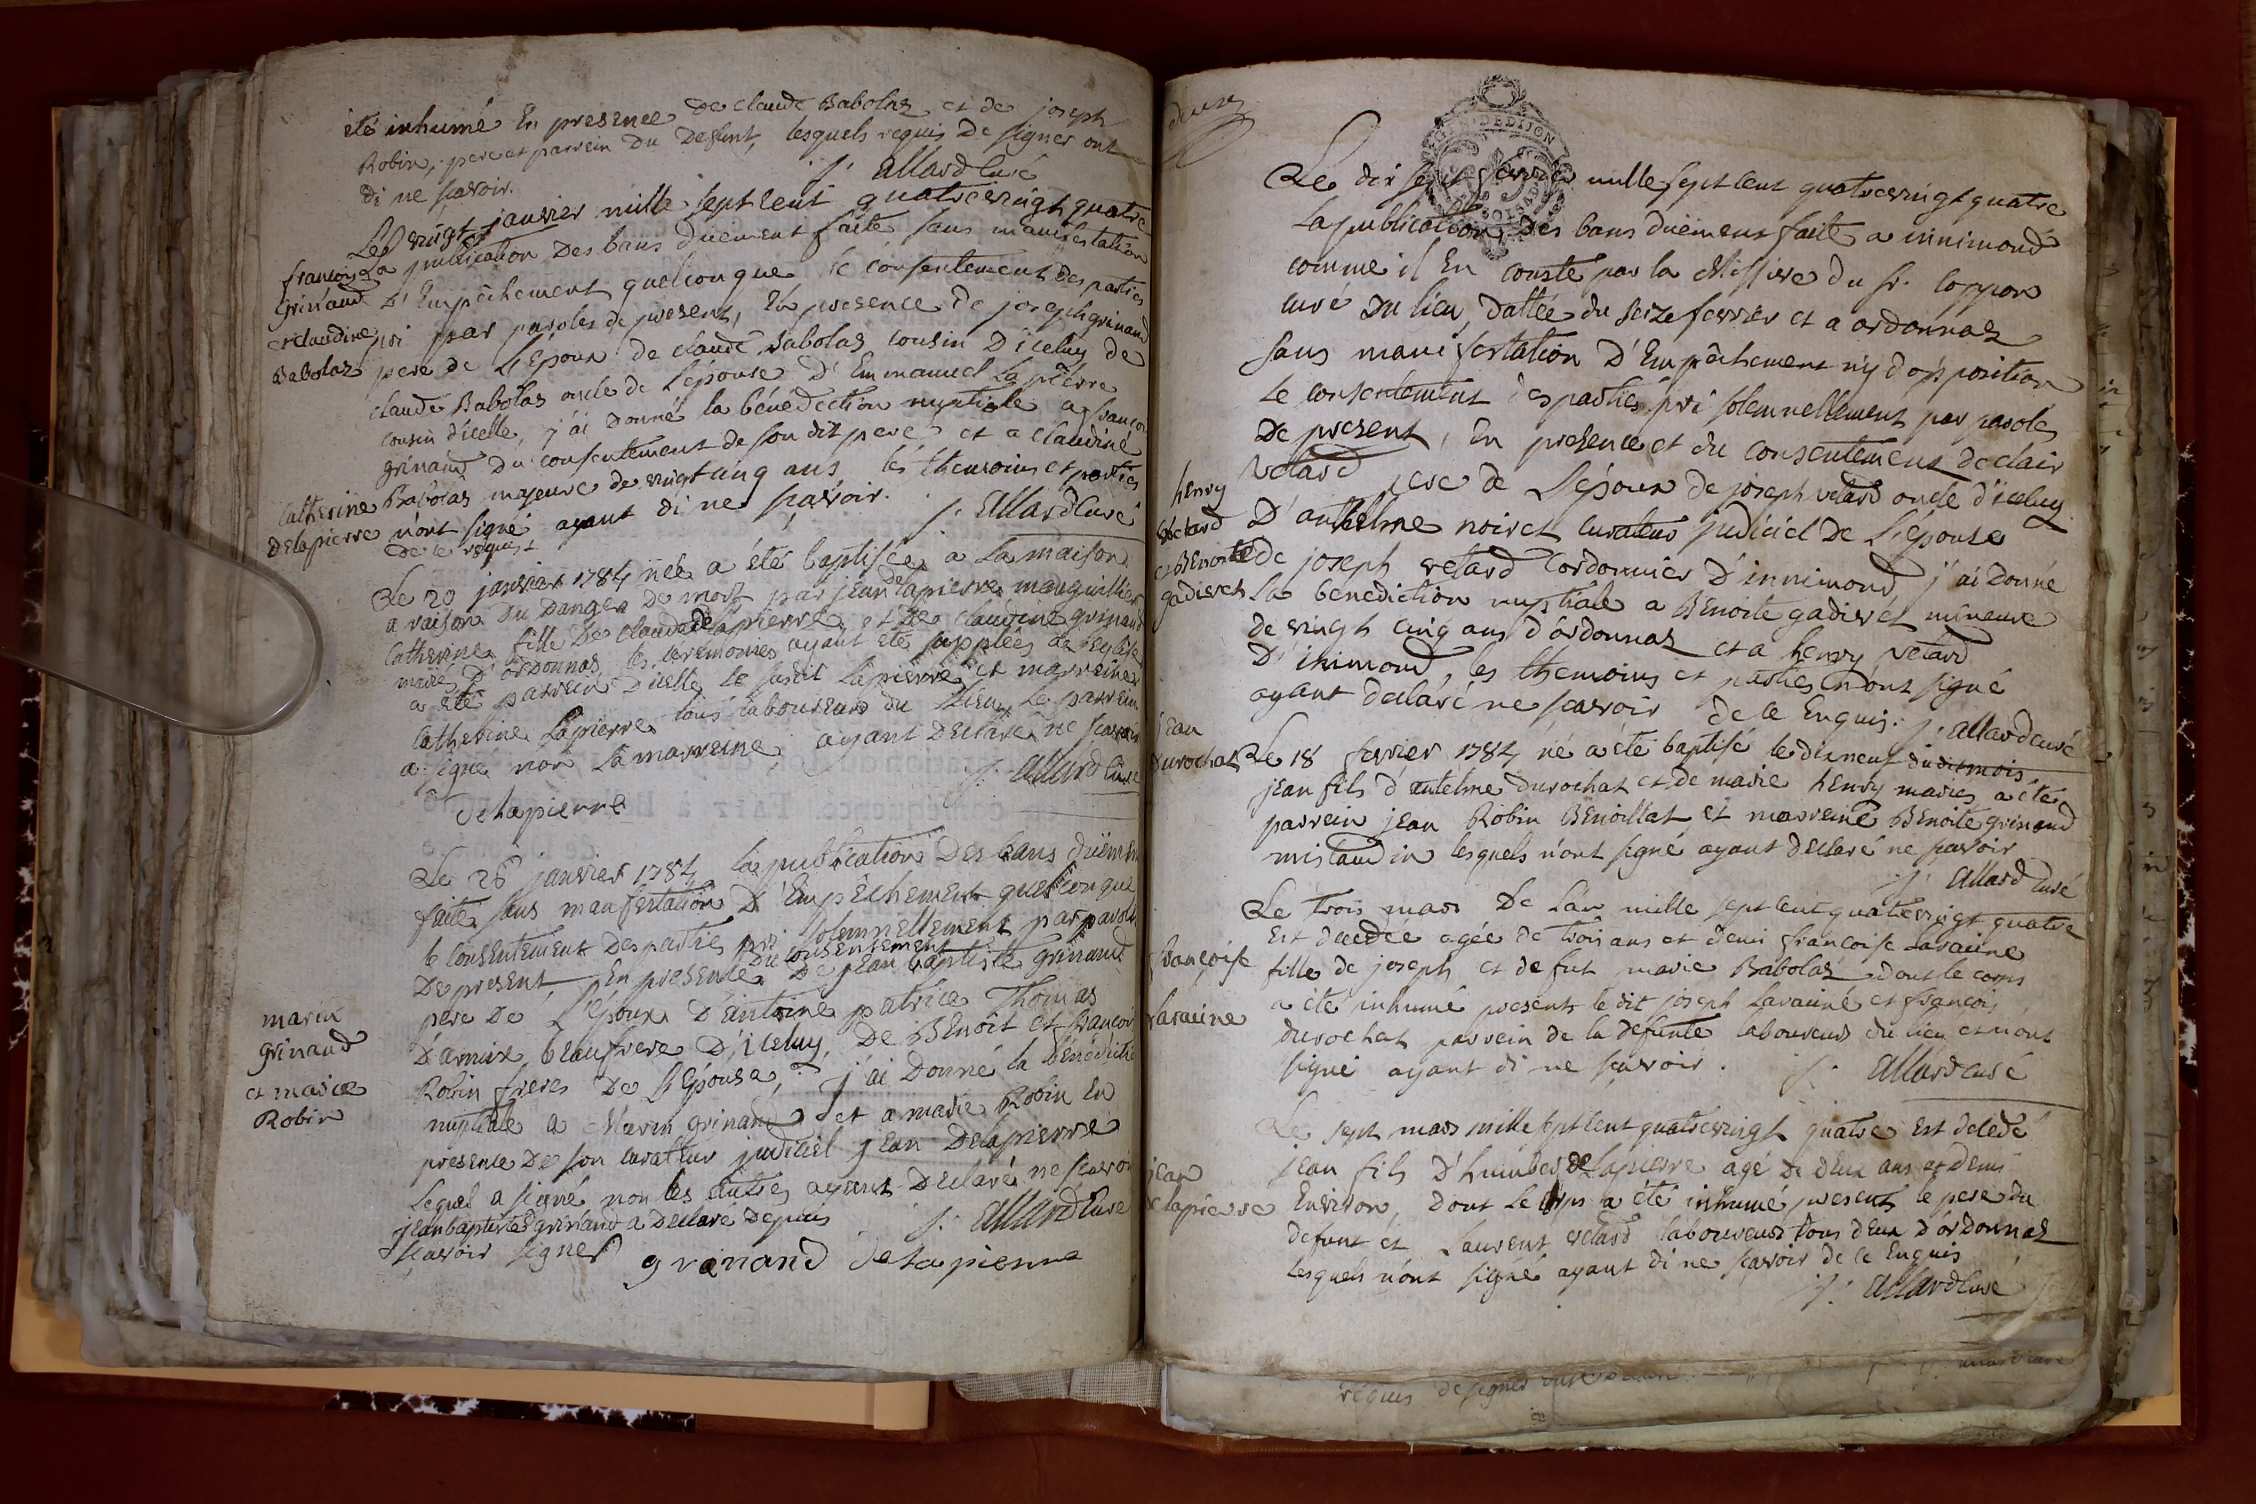 été inhumé En presence de claude Babolaz et de joseph
Robin, pere et parrein du defunt, lesquels requis de signer ont
di ne sçavoir. J. allard Curé
Le vingt janvier mille sept cent quatrevingt quatre
La publication des bans duement faite sans manifestation
D'Empêchement quelconque le consentement des parties
pri par paroles de present, En presence de joseph grinand
pere de L'Epoux de claude Babolaz cousin D'iceluy de
claude Babolaz oncle de L'epouse D'Emmanuel Lapierre
cousin d'icelle, j'ai donné la bénédiction nuptiale a françois
grinand du consentement de son dit pere et a claudine
Babolaz majeure de vingt cinq ans les themoins et parties
n'ont signé ayant di ne sçavoir. J. Allard Curé
de ce requist
françois
Grinand
et claudine
Babolaz
Catherine
Delapierre
Le 20 janvier 1784 née a été baptisée a La maison
a raison du danger de mort par jean delapierre marguillier
Catherine fille de claude delapierre et de claudine grinand
mariés D'ordonnaz les ceremonies ayant été supplées de l'eglise
a été parrein d'icelle le susdit Lapierre et marreine
Catherine Lapierre tous laboureurs du Lieu, Le parrein
a signé non La marreine ayant declaré ne sçavoir
J. allard Curé
Delapierre
Le 26 janvier 1784 la publication Des bans duëment
faite sans manifestation D'Empêchement quelconque
le Consentement des parties pri solemnellement par paroles
du consentement
De present, En presence De jean baptiste grinand
pere de L'Epoux D'antoine patrice Thomas
D'arnix beaufrere D'iceluy, De Benoit et françois
Robin freres De L'Epouse, j'ai Donné la bénédiction
nuptiale a Marin grinand et a marie Robin En
presence De son curateur judiciel jean Delapierre
Lequel a signé non les autres ayant Declaré ne sçavoir
jean baptiste grinand a Declaré Depuis J. allard Curé
sçavoir signer grinand delapierre
marin
grinand
et marie
Robin
deux
GEN. DE DIJON
Le dix sept fevrier mille sept cent quatrevingt quatre
La publication des bans duëment faite a innimond
comme il En conste par la Missive du sr. Coppon
curé du lieu dattée du seize fevrier et a ordonnaz
sans manifestation D'Empêchement ny d'opposition
Le consentement des parties pri solemnellement par paroles
De present, En presence et du consentement de clair
Vetard pere de L'époux de joseph vetard oncle d'iceluy
D'anthelme noiret curateur judiciel De L'Epouse
de joseph vetard Cordonnier D'innimond j'ai donné
La benediction nuptiale a Benoite gadieret mineure
de vingt cinq ans d'ordonnaz et a henry vetard
D'inimond les themoins et parties n'ont signé
ayant declaré ne sçavoir de ce Enquis. J. allard curé
henry
Vetard
et Benoite
gadieret
jean
Durochat
Le 18 fevrier 1784 né a été baptisé le dixneuf du dit mois
jean fils d'antelme durochat et de marie henry mariés a été
parrein jean Robin Benoillat et marreine Benoite grinand
mistaudin lesquels n'ont signé ayant declaré ne sçavoir
J. allard Curé
Le trois mars De L'an mille sept cent quatrevingt quatre
Est decedée agée de trois ans et demi françoise Laraiine
fille de joseph et de fut marie Babolaz dont le corps
a été inhumé presents le dit joseph Laraiiné et françois
durochat parrein de la defunte laboureurs du lieu et n'ont
signé ayant di ne sçavoir. J. allard curé
françoise
Laraiine
Le sept mars mille sept cent quatrevingt quatre Est decedé
jean fils D'humber delapierre agé de deux ans et demi
Environ, Dont Le corps a été inhumé presents le pere du
defunt et Laurent vetard laboureurs tous deux d'ordonnaz
Lesquels n'ont signé ayant di ne sçavoir de ce Enquis
J. allard Curé
jean
delapierre
requis de signer